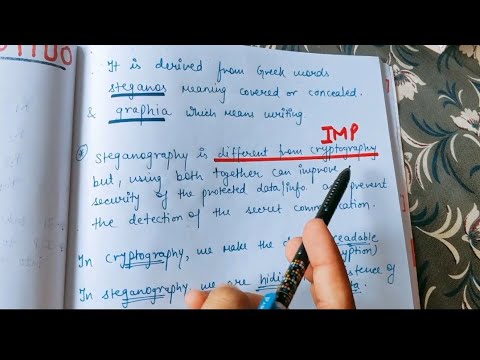 It is derived from Greek words
steganos meaning covered or concealed.
& graphia which means writing
IMP
Steganography is different from cryptography
but, using both together can improve
security of the protected data/info. prevent
the detection of the secret communication.
In cryptography, we make the readable
In steganography, we are